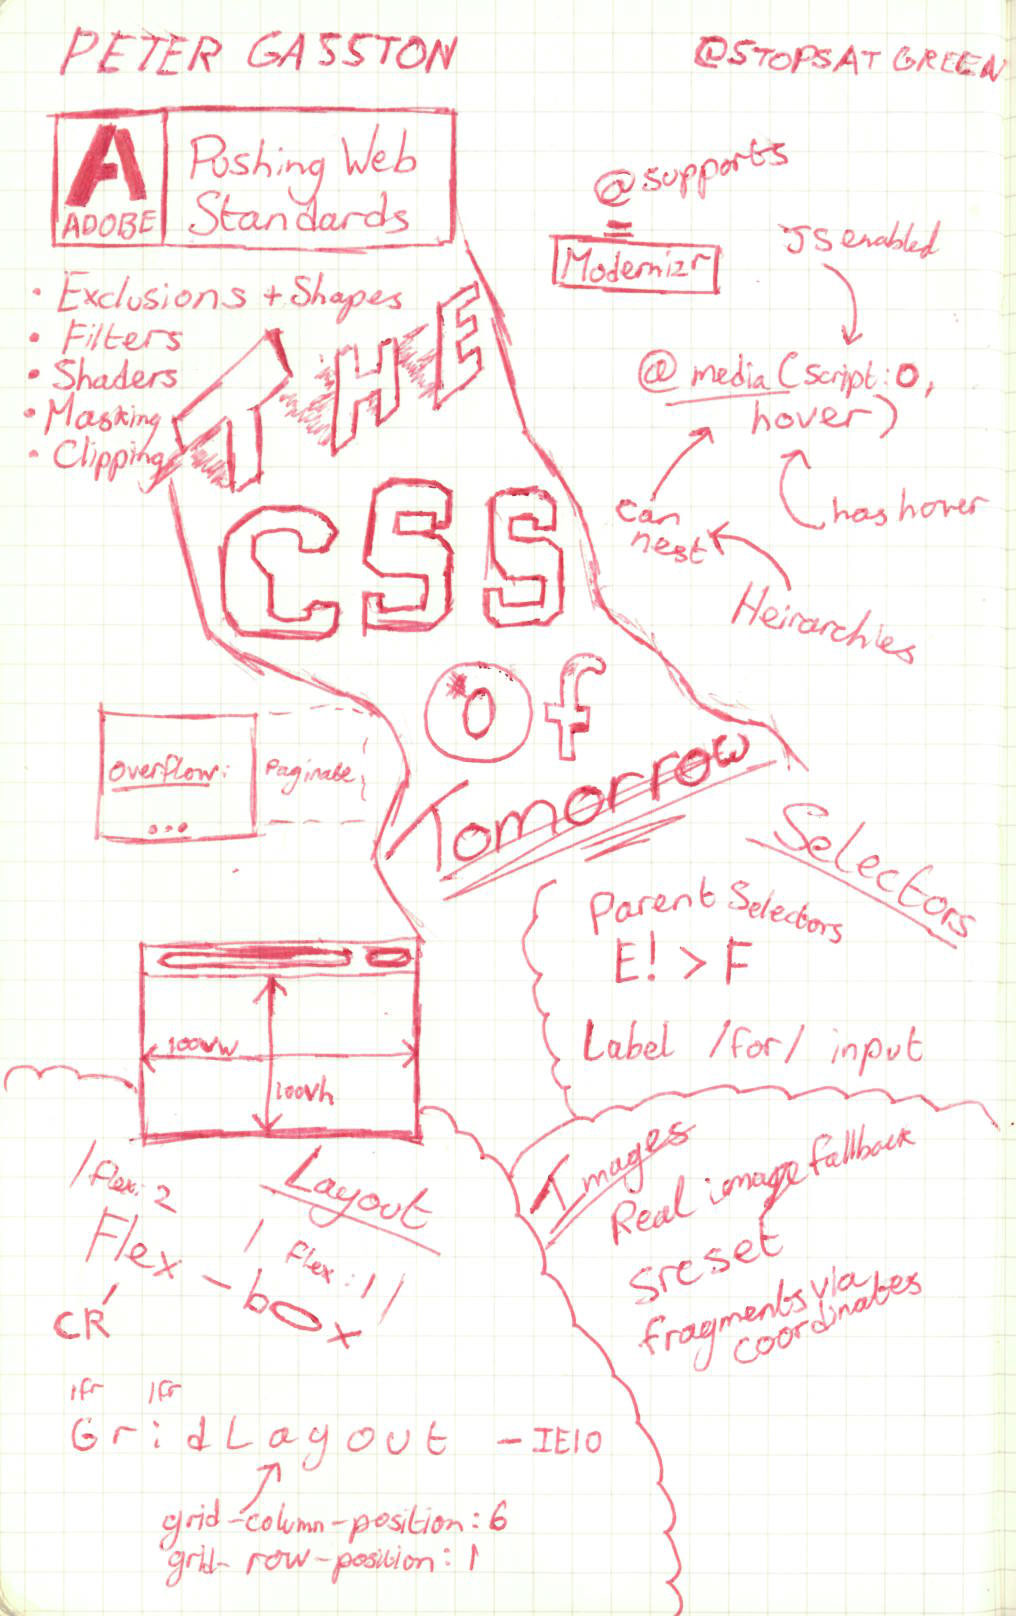 PETER GASSTON
@STOPSATGREEN
A
ADOBE
Pushing Web
Standards
• Exclusions + Shapes
• Filters
• Shaders
• Masking
• Clipping
THE
CSS
Of
Tomorrow
@supports
=
Modernizr
JS enabled
@media (script:0,
hover)
can
nest
has hover
Heirarchies
overflow:
paginate
...
Selectors
Parent Selectors
E! > F
Label /for/ input
100vw
100vh
Layout
/flex: 2
Flex-box
/ flex: 1 /
CR
1fr 1fr
Grid Layout - IE10
grid-column-position: 6
grid-row-position: 1
Images
Real image fallback
srcset
fragments via
coordinates